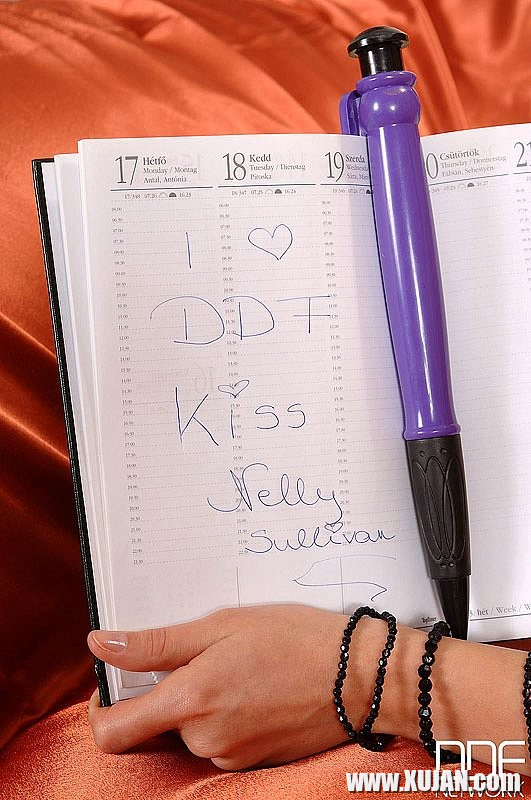 17 Hétfő
Monday / Montag
Antal, Antónia
17/349 07:26 16:23
18 Kedd
Tuesday / Dienstag
Piroska
18/347 07:25 16:24
19 Szerda
Csütörtök
Thursday / Donnerstag
Fábián, Sebestyén
21
I ♡
DDF
Kiss
Nelly
Sullivan
hét / Week / W
DDF
NETWORK
www.XUJAN.com